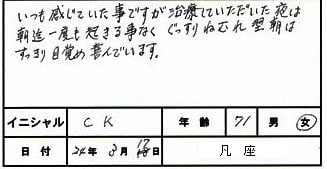 いつも感じていた事ですが治療していただいた夜は
朝迄一度も起きる事なく ぐっすりねむれ 翌朝は
すっきり目覚め喜んでいます。
イニシャル C K 年齢 71 男 女
日付 24年 3月 日 凡座